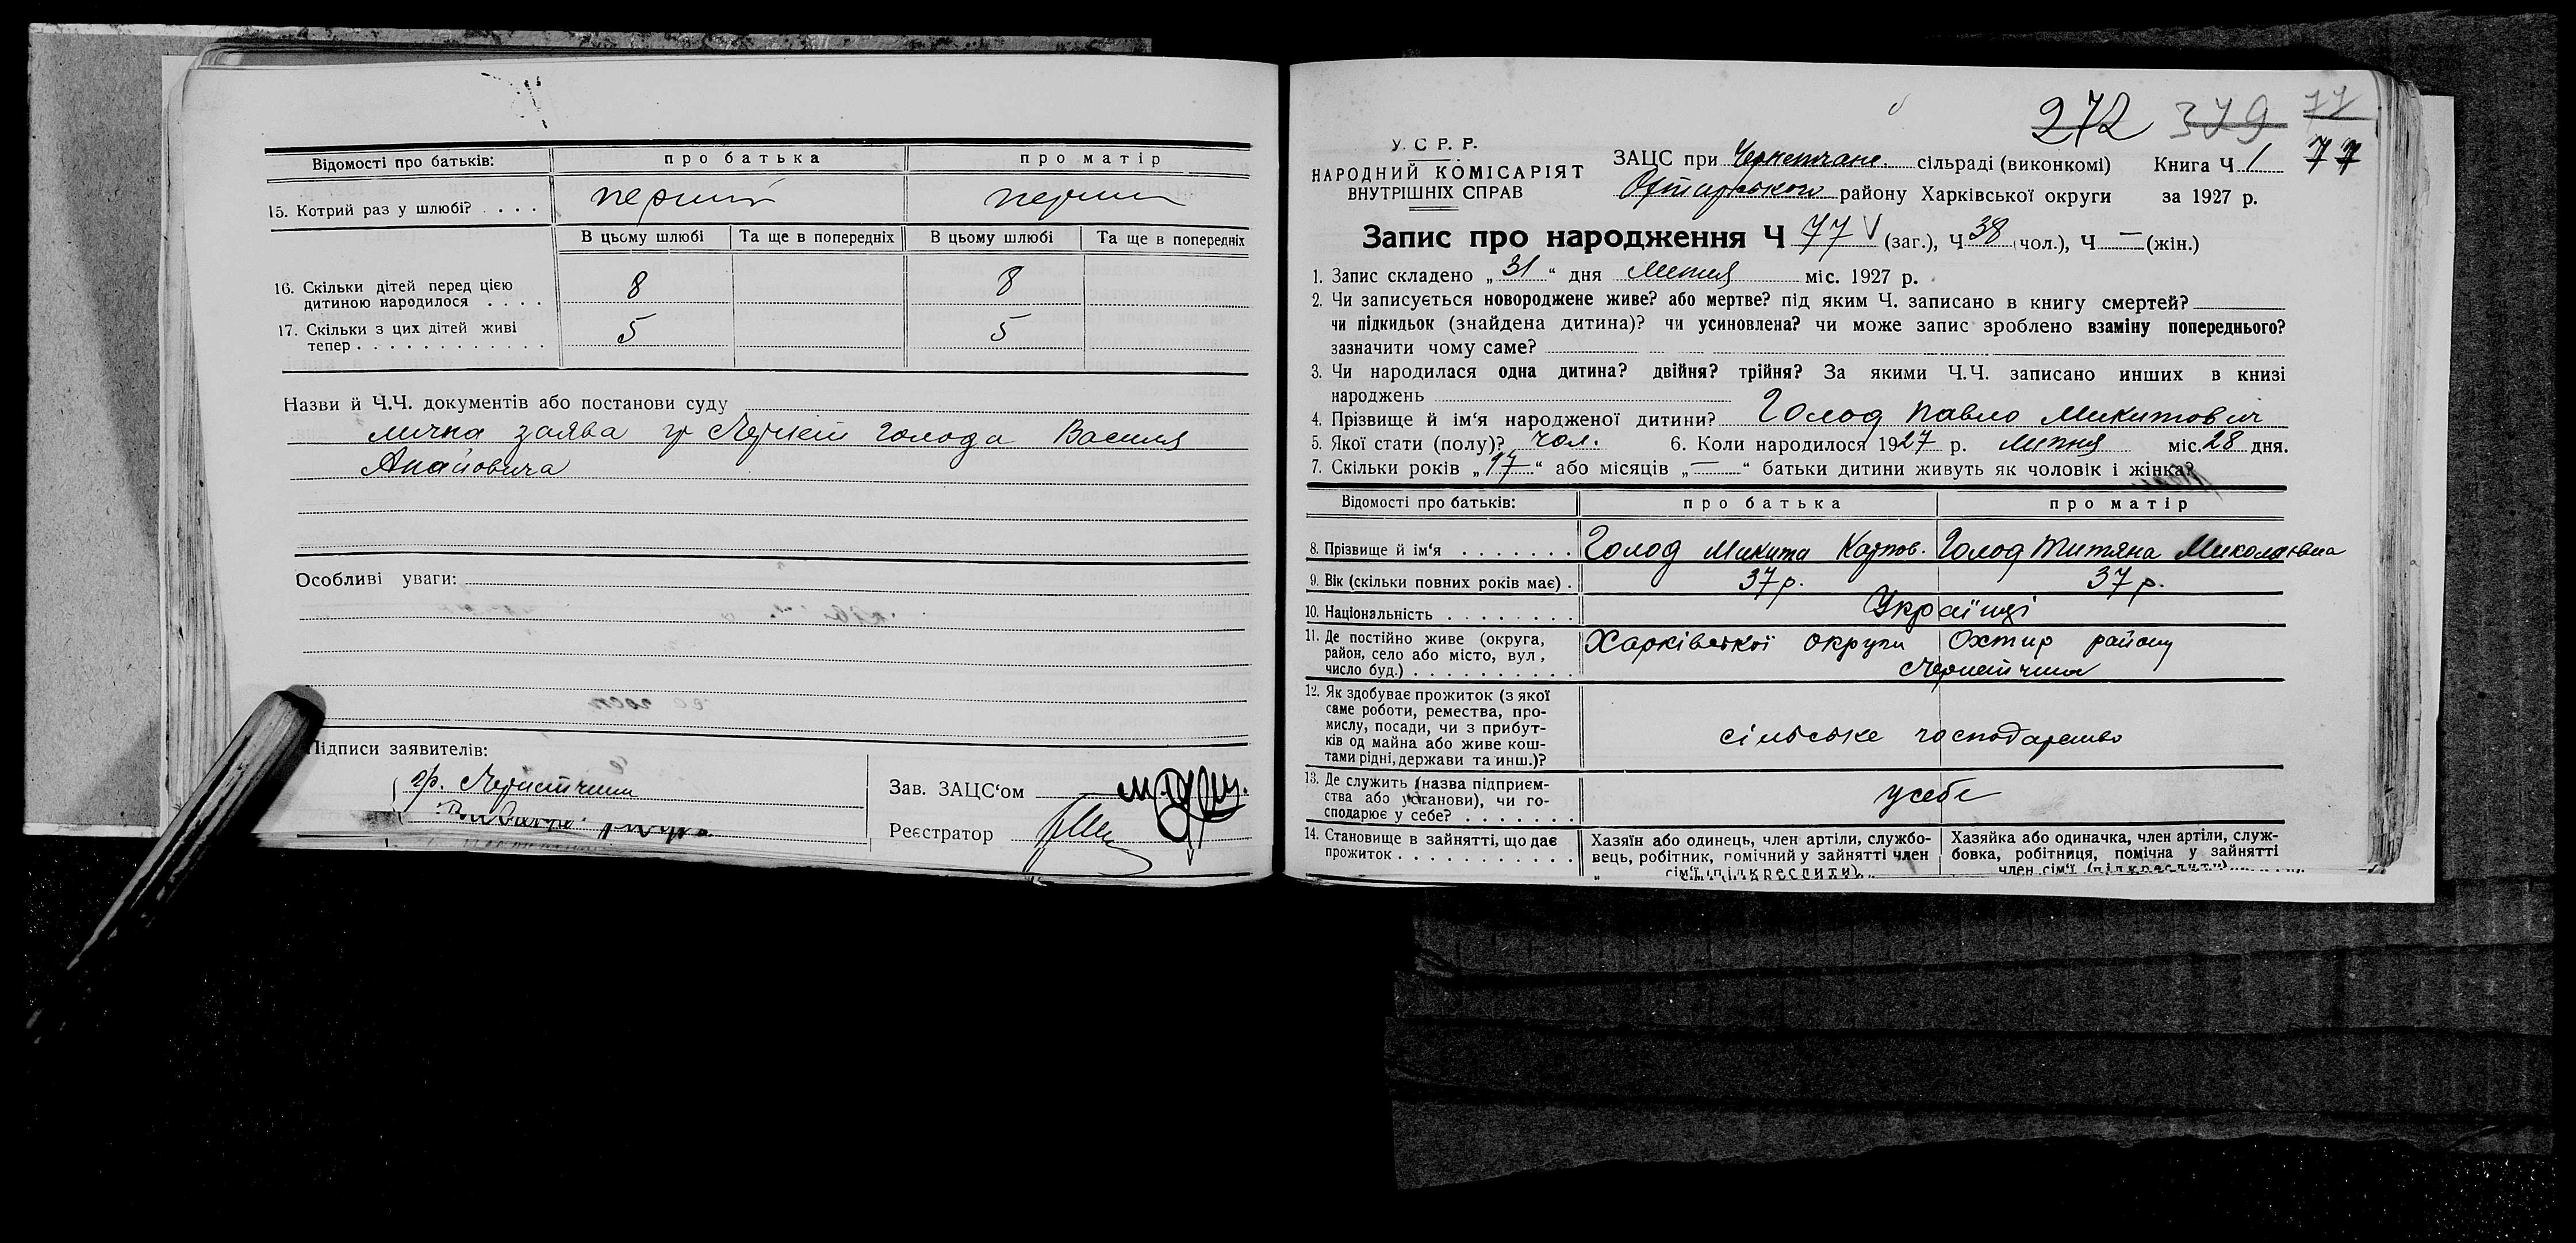 Відомості про батьків: про батька про матір
15. Котрий раз у шлюбі? . . . . перший перший
В цьому шлюбі Та ще в попередніх В цьому шлюбі Та ще в попередніх
16. Скільки дітей перед цією
дитиною народилося . . . . 8 8
17. Скільки з цих дітей живі
тепер . . . . . . . . . . . . 5 5
Назви й Ч.Ч. документів або постанови суду
лична заява гр Голода Василя
Особливі уваги:
Підписи заявителів:
гр.
Зав. ЗАЦС‘ом
Реєстратор
272 379 77
У. С Р. Р.
НАРОДНИЙ КОМІСАРІЯТ
ВНУТРІШНІХ СПРАВ
ЗАЦС при сільраді (виконкомі) Книга Ч 1 77
району Харківської округи за 1927 р.
Запис про народження Ч 77 V (заг.), Ч 38 (чол.), Ч — (жін.)
1. Запис складено „31“ дня Липня міс. 1927 р.
2. Чи записується новороджене живе? або мертве? під яким Ч. записано в книгу смертей?
чи підкидьок (знайдена дитина)? чи усиновлена? чи може запис зроблено взаміну попереднього?
зазначити чому саме?
3. Чи народилася одна дитина? двійня? трійня? За якими Ч.Ч. записано инших в книзі
народжень
4. Прізвище й ім‘я народженої дитини? Голод Павло Микитович
5. Якої стати (полу)? чол. 6. Коли народилося 1927 р. Липня міс. 28 дня.
7. Скільки років „17“ або місяців „—“ батьки дитини живуть як чоловік і жінка?
Відомості про батьків: про батька про матір
8. Прізвище й ім‘я . . . . . . . Голод Микита Карпов. Голод Титяна Миколаївна
9. Вік (скільки повних років має) . 37 р. 37 р.
10. Національність . . . . . . . . Українці
11. Де постійно живе (округа, Харківської округи Охтир району
район, село або місто, вул,
число буд.) . . . . . . . . . .
12. Як здобуває прожиток (з якої
саме роботи, ремества, про-
мислу, посади, чи з прибут- сільське господарство
ків од майна або живе кош-
тами рідні, держави та инш.)?
13. Де служить (назва підприєм-
ства або установи), чи го- усебе
сподарює у себе? . . . . . . .
14. Становище в зайнятті, що дає Хазяїн або одинець, член артіли, службо- Хазяйка або одиначка, член артіли, служ-
прожиток . . . . . . . . . . . вець, робітник, помічний у зайнятті член бовка, робітниця, помічна у зайнятті
сім‘ї (підкреслити) член сім‘ї (підкреслити)